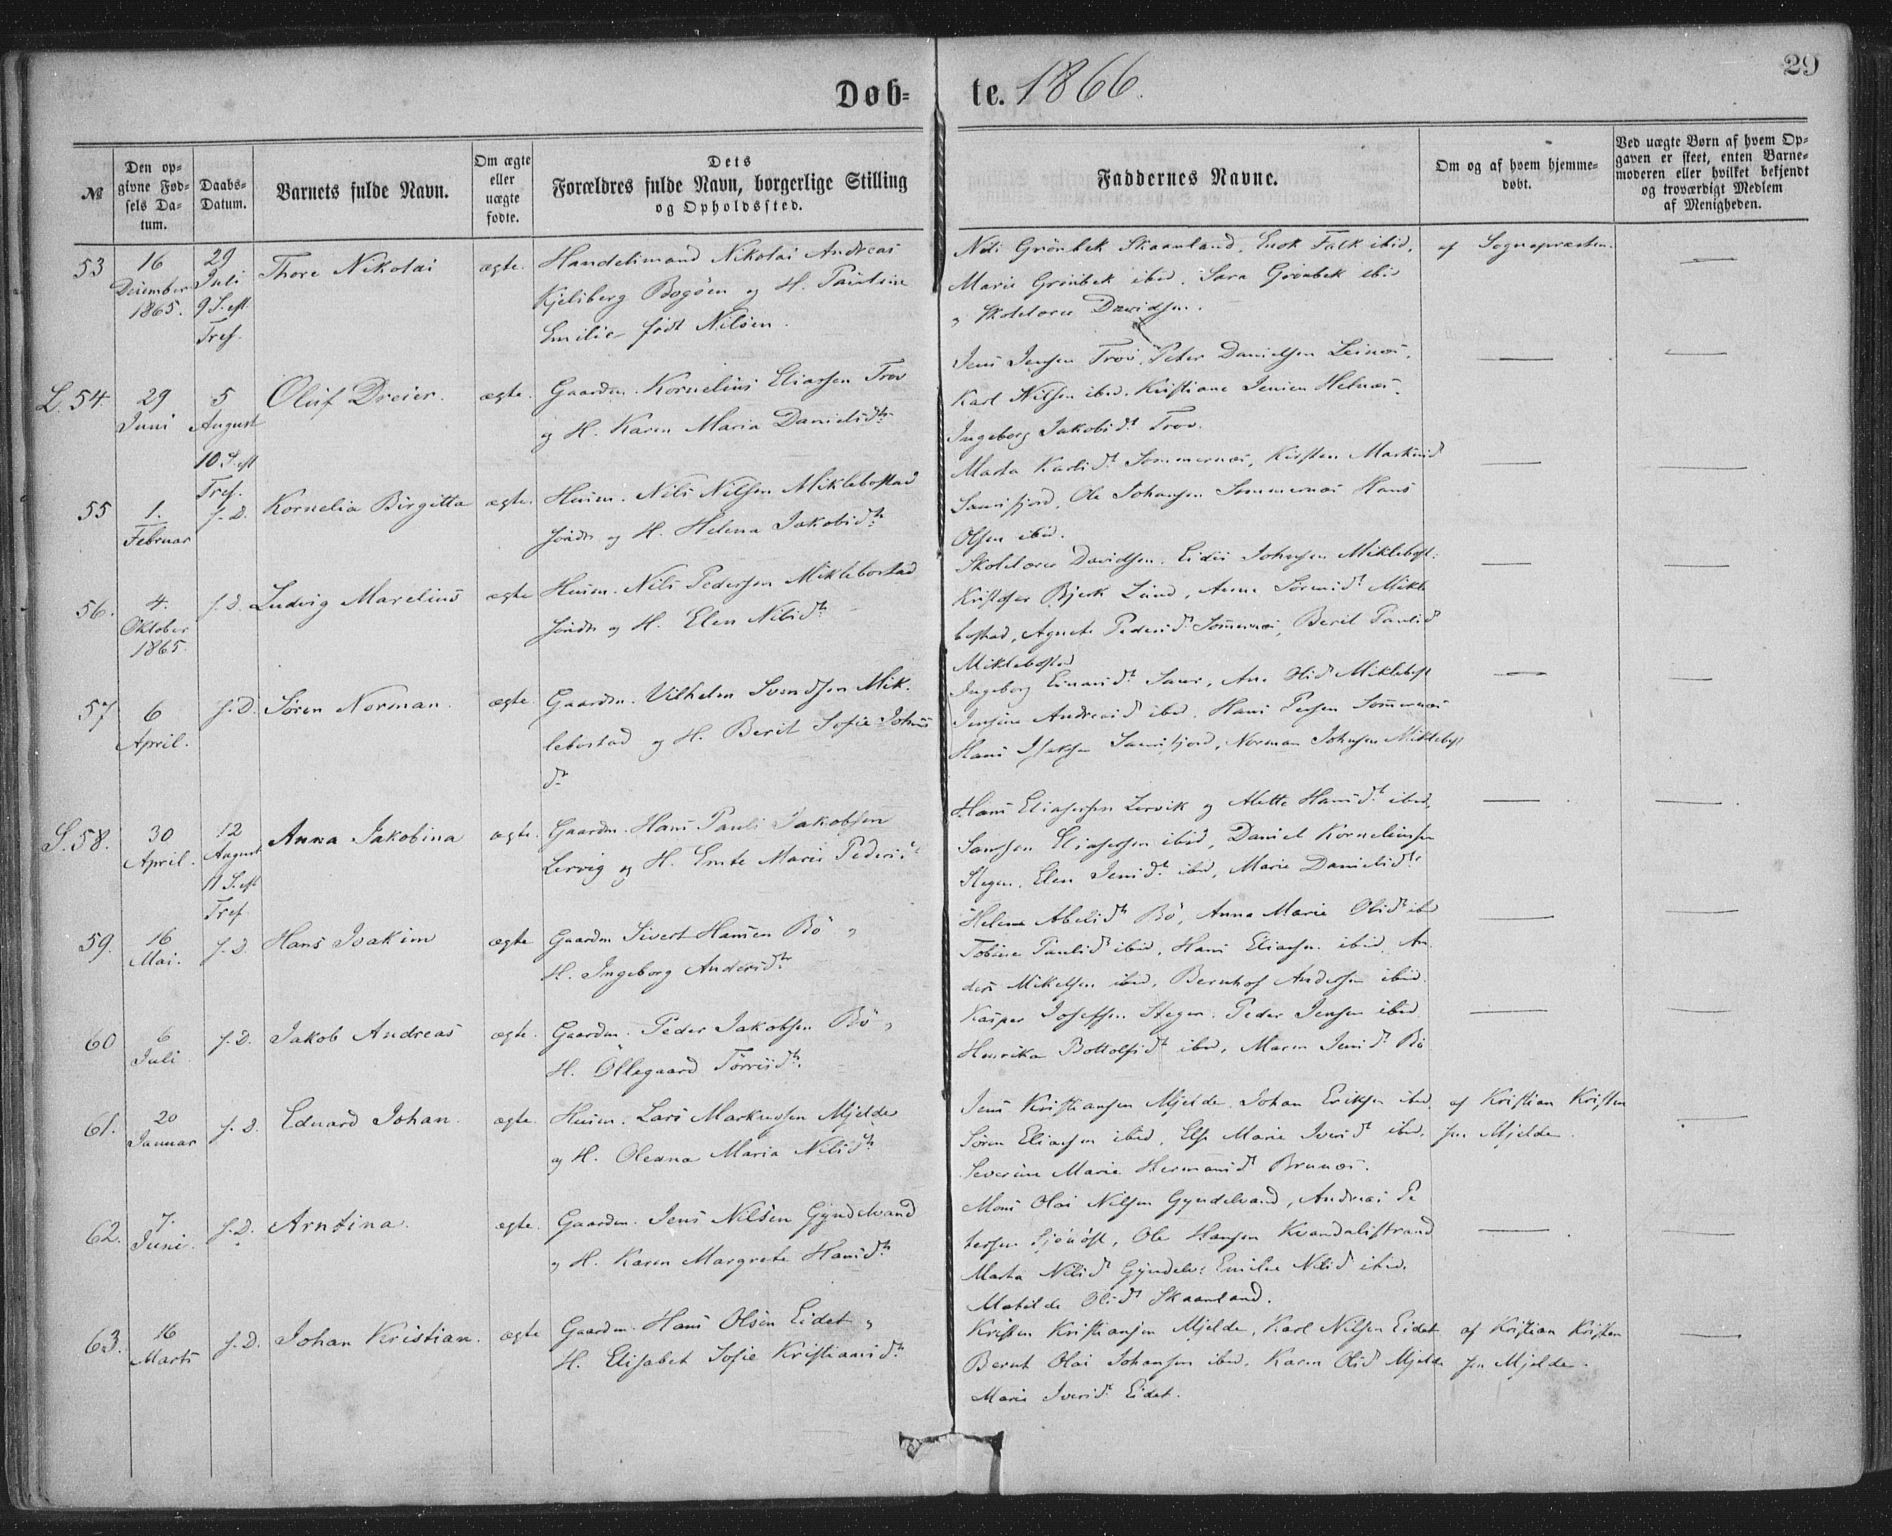 Døb= te. 1866.
29
№
Den op-
givne Fød-
sels Da-
tum.
Daabs-
Datum.
Barnets fulde Navn.
Om ægte
eller
uægte
fødte.
Dets
Forældres fulde Navn, borgerlige Stilling
og Opholdssted.
Faddernes Navne.
Om og af hvem hjemme-
døbt.
Ved uægte Børn af hvem Op-
gaven er skeet, enten Barne-
moderen eller hvilket bekjendt
og troværdigt Medlem
af Menigheden.
53
16
December
1865.
29
Juli
9 S. eft
Tref.
Thore Nikolai
ægte.
Handelsmand Nikolai Andreas
Kjelsberg Bogøen og H. Pauline
Emilie født Nilsen.
Grönbek Skaanland, Enok Falk ibid,
Marie Grönbek ibid, Sara Grönbek ibid
Skolelærer Davidsen.
af Sognepræsten.
L. 54.
29
Juni
5
August
10 S. eft
Tref.
Oluf Dreier.
ægte.
Gaardm. Kornelius Eliassen Trov
og H. Karen Maria Danielsdtr
Jens Jensen Trov, Peter Danielsen Leines,
Karl Nilsen ibid. Kristiane Jensen Helnes,
Ingeborg Jakobsdt Trov.
55
1.
Februar
f. D.
Kornelia Birgitta
ægte.
Husm. Nils Nilsen Miklebostad
og H. Helena Jakobsdtr
Marta Karlsdt Sommernes, Kirsten Markusd
Ole Johansen Sommernes Hans
Olsen ibid.
56.
4.
Oktober
1865.
f. D.
Ludvig Marelius
ægte
Husm. Nils Pedersen Miklebostad
og H. Elen Nilsdtr
Skolelærer Davidsen. Johnsen Miklebost.
Kristofer Bjerk Lund, Anne Sörensdt Mikle
bostad, Agnete Pedersdt Sommernes, Berit Paulsd
Miklebostad
57
6
April.
f. D.
Søren Norman.
ægte.
Gaardm. Vilhelm Svendsen Mik-
lebostad og H. Berit Sofie Johns
dtr
Ingeborg Einarsdt Miklebost
Jensine Andreasd ibid. Hans Jensen Sommernes
Hans Isaksen Norman Johnsen Miklebost
S. 58.
30
April.
12
August
11 S. eft
Tref
Anna Jakobina
ægte.
Gaardm. Hans Pauli Jakobsen
Lervig og H. Marie Peders
Hans Eliasersen Lervik og Mette Hansdt ibid,
Samson Eliasersen ibid, Daniel Korneliussen
Stegen, Elen Jensdt ibid, Marie Danielsdtr
59.
16
Mai.
f. D.
Hans Joakim
ægte
Gaardm Sivert Hansen Bö
H. Ingeborg Andersdtr
Helene Abelsdt Bö, Anna Marie Olsdt ibid
Paulsd ibid, Hans Eliassen ibid, An
ders Mikelsen ibid, Bernhof Andersen ibid.
60
6
Juli
f. D.
Jakob Andreas
ægte.
Gaardm. Peder Jakobsen Bö
H. Ollegaard Törrisdtr.
Kasper Josefsen Stegen. Peder Jensen ibid.
Henrika Bottolfsdt ibid, Maren Jensdt Bö
61.
20
Januar
f. D.
Eduard Johan.
ægte.
Husm. Lars Markussen Mjelde
og H. Oleana Maria Nilsdtr
Jens Kristiansen Mjelde, Johan Eriksen ibid,
Sören Eliassen ibid, Else Marie Iversdt ibid,
Severine Marie Hermansdt Brunæs.
af Kristian Kristen
sen Mjelde.
62.
7.
Juni.
f. D.
Arntina.
ægte.
Gaardm. Jens Nilsen Gyndelvand
og H. Karen Margrete Hansdtr
Mons Olai Nilsen Gyndelvand, Andreas Pe
tersen Ole Hansen Kvandalstrand
Marta Nilsd Gyndelv: Emilie Nilsd ibid,
Matilde Olsdt Skaanland.
63.
16
Marts
f. D.
Johan Kristian.
ægte
Gaardm Hans Olsen Eidet
H. Elisabet Sofie Kristiansdtr
Kristen Kristiansen Mjelde, Karl Nilsen Eidet
Bernt Olai Johansen ibid, Karen Olsd Mjelde
Marie Iversdt Eidet.
af Kristian Kristen
sen Mjelde.